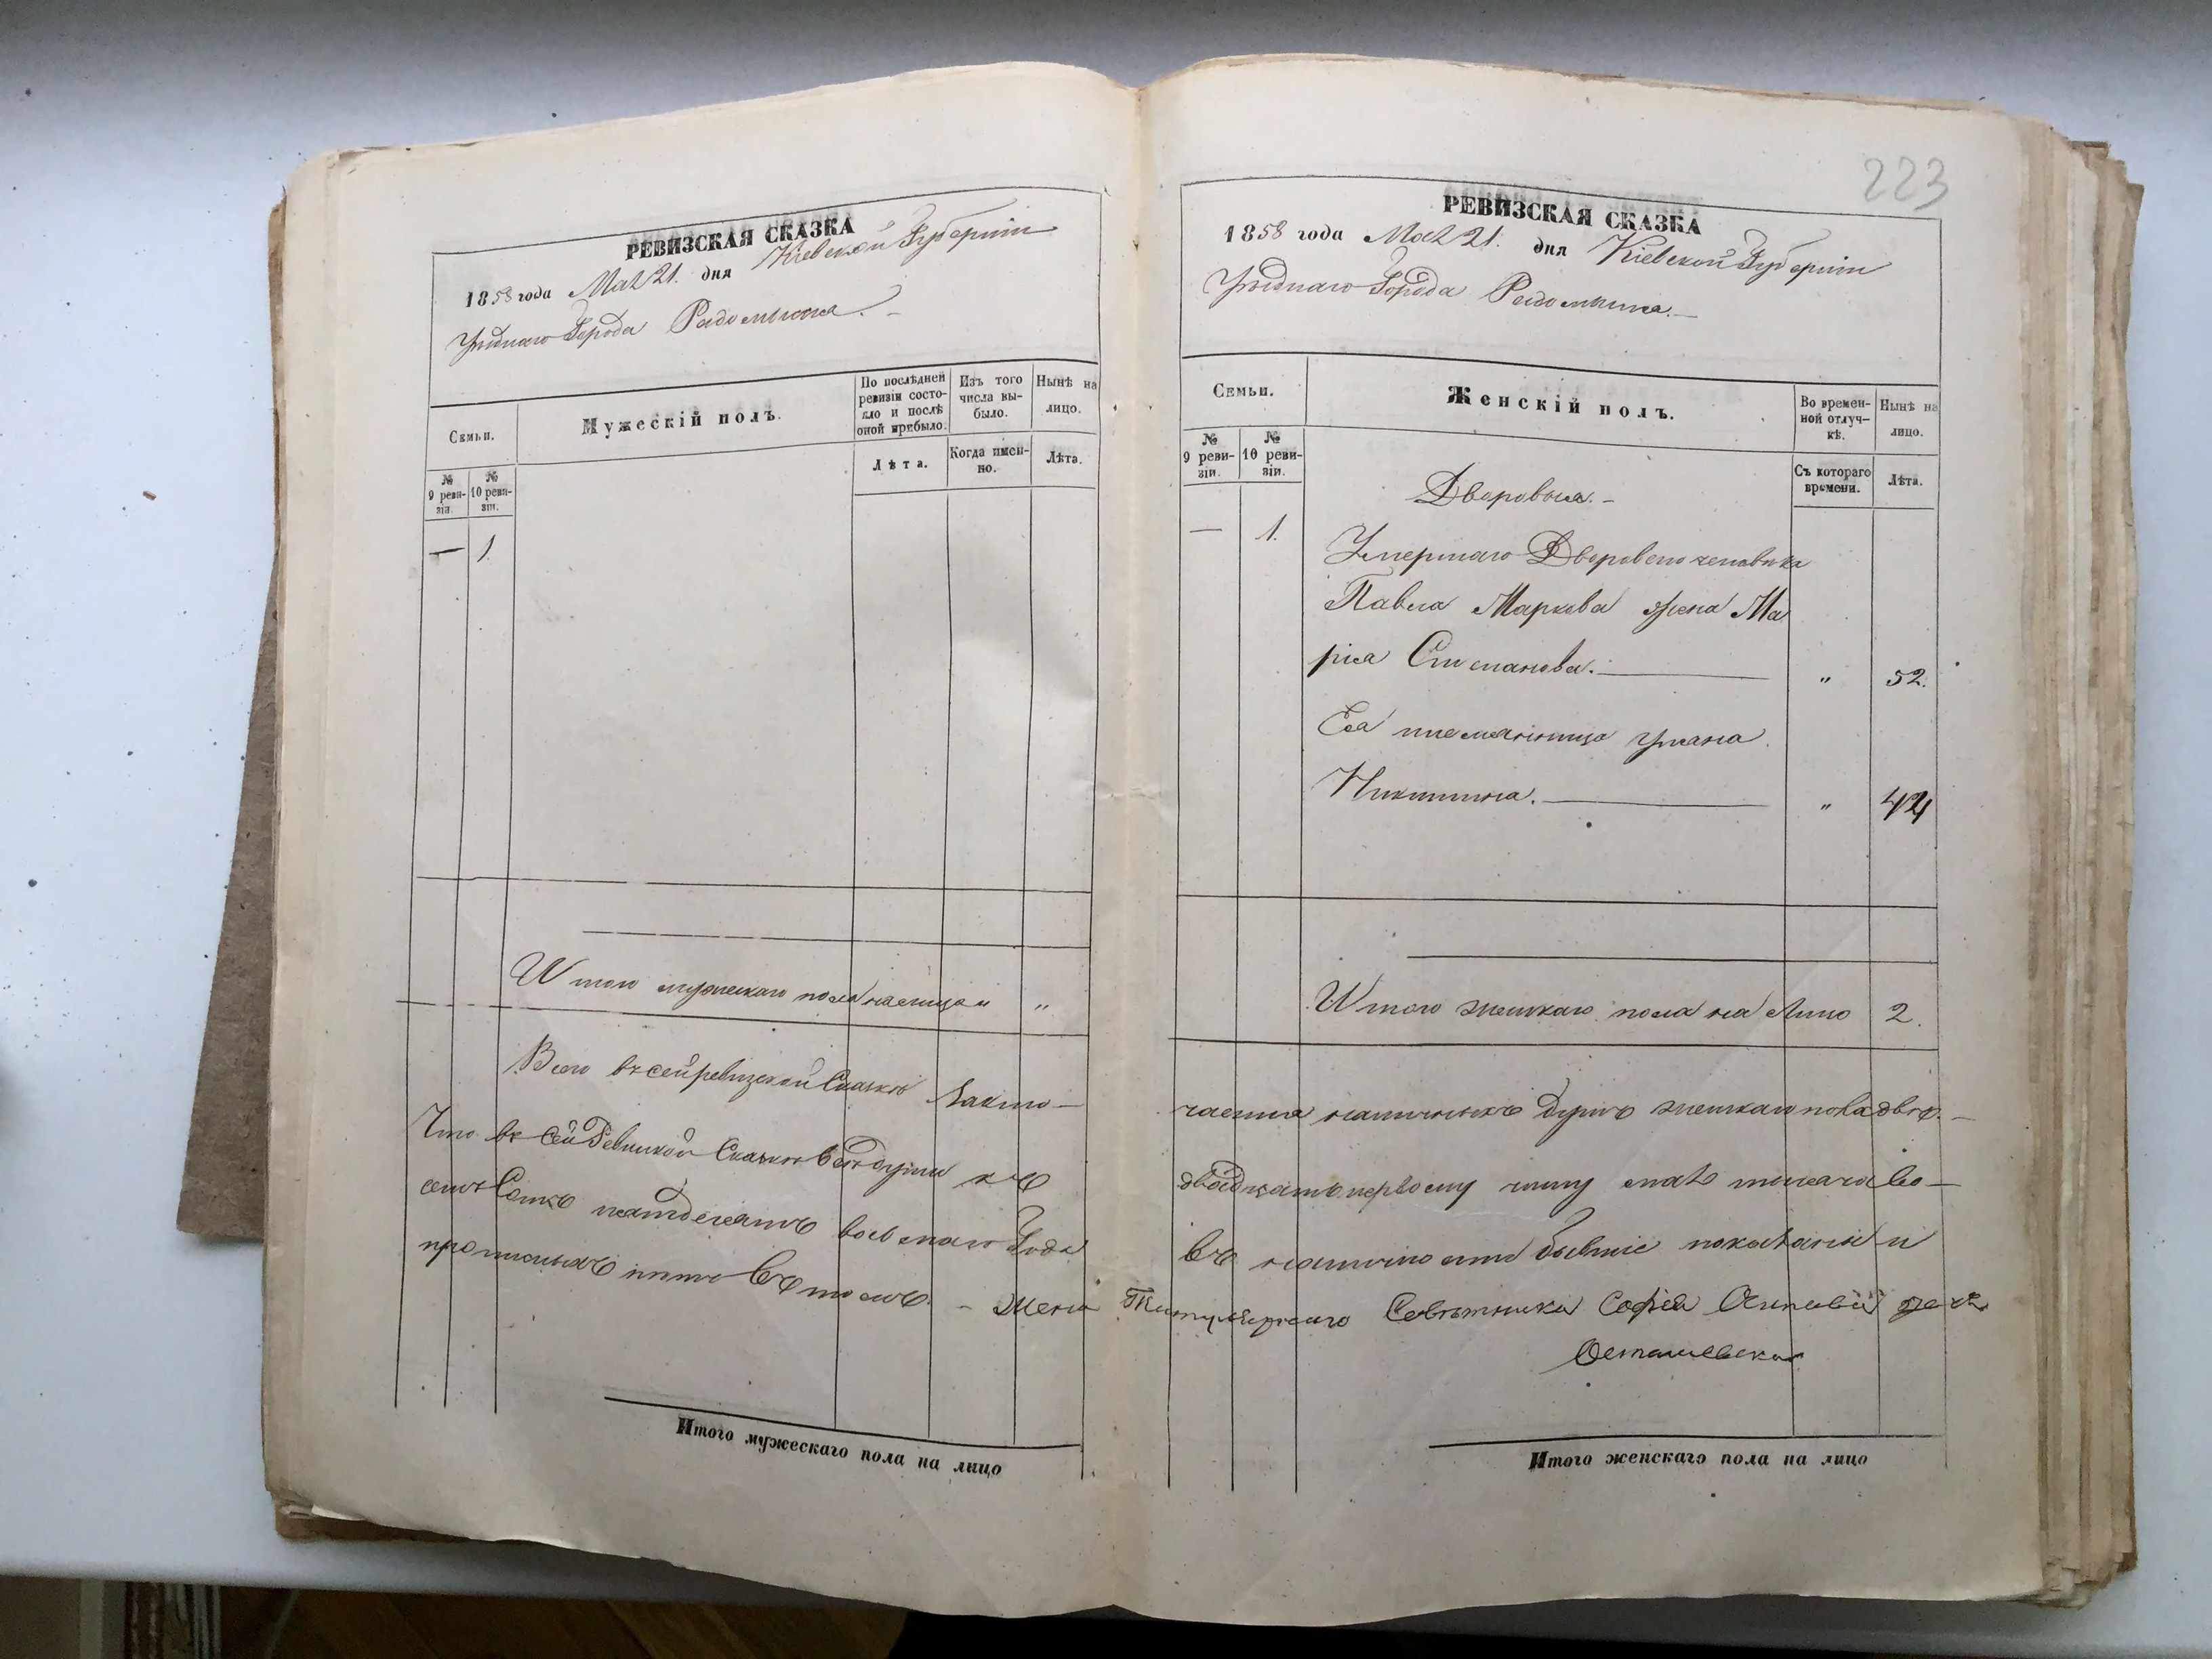 РЕВИЗСКАЯ СКАЗКА
1858 года Мая 21. дня Кіевской Губерніи
Уѣзднаго Города Радомысля.
Семьи.
Мужескій полъ.
По послѣдней ревизіи состояло и послѣ оной прибыло.
Изъ того числа выбыло.
Нынѣ на лицо.
№ 9 ревизіи.
№ 10 ревизіи.
Лѣта.
Когда именно.
Лѣта.
— 1.
Итого мужескаго пола на лицо " "
Всего въ сей ревизской Сказкѣ заклю-
Что въ сей Ревизкой Сказкѣ всѣ души къ
сотъ пятдесятъ восьмаго Года
прописныхъ нѣтъ Въ томъ. – Жена
Итого мужескаго пола на лицо
223
РЕВИЗСКАЯ СКАЗКА
1858 года Мая 21. дня Кіевской Губерніи
Уѣзднаго Города Радомысля.
Семьи.
Женскій полъ.
Во временной отлучкѣ.
Нынѣ на лицо.
№ 9 ревизіи.
№ 10 ревизіи.
Съ котораго времени.
Лѣта.
Дворовыя. –
— 1.
Умершаго Двороваго человѣка
Павла Маркова жена Ма
рія Степанова. " 52.
Ея племянница
Никитина. " 42
Итого женскаго пола на Лицо 2.
чается наличныхъ душъ женскаго пола двѣ. –
двадцать первому числу мая тысяча во–
въ наличности бывшіе показаны и
Титулярнаго Совѣтника Софія
Итого женскаго пола на лицо